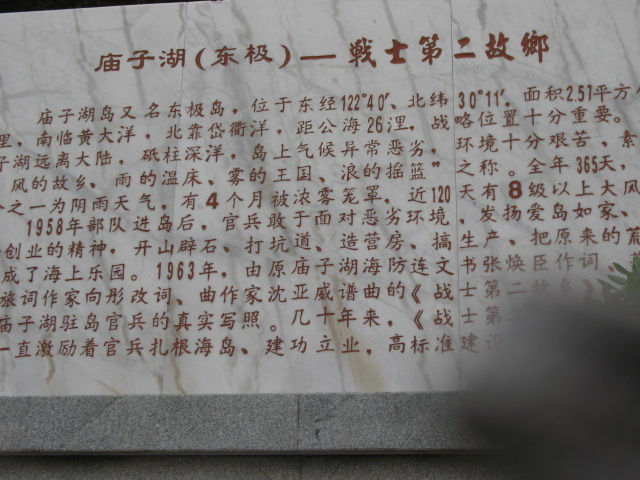 庙子湖(东极)—戦士第二故鄉
庙子湖岛又名东极岛，位于东经122°40′、北纬30°11′，面积2.57平方
里，南临黄大洋，北靠岱衢洋，距公海26浬，战略位置十分重要。
子湖远离大陆，砥柱深洋，岛上气候异常恶劣，环境十分艰苦，素
风的故乡、雨的温床、雾的王国，浪的摇篮”之称。全年365天，
分之一为阴雨天气，有4个月被浓雾笼罩，近120天有8级以上大风
1958年部队进岛后，官兵敢于面对恶劣环境，发扬爱岛如家、
创业的精神，开山辟石、打坑道、造营房、搞生产、把原来的荒
成了海上乐园。1963年，由原庙子湖海防连文书张焕臣作词
旅词作家向彤改词、曲作家沈亚威谱曲的《战士第二故乡
庙子湖驻岛官兵的真实写照。几十年来，《战士第二
一直激励着官兵扎根海岛、建功立业，高标准建设